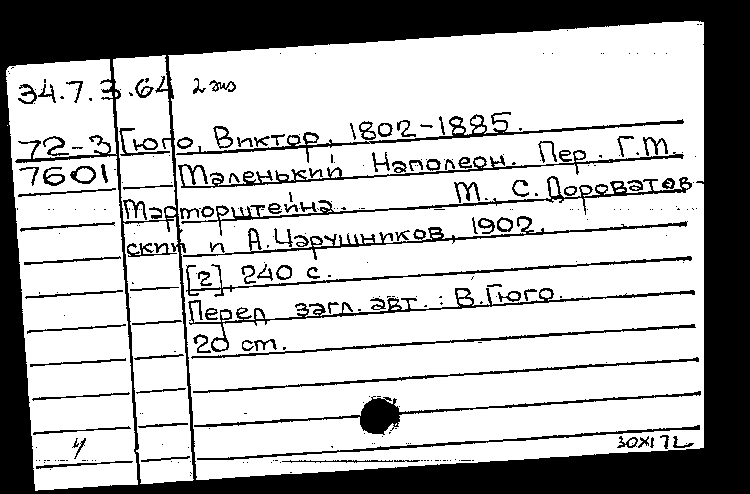 34.7.3.64 2 экз
72-3 Гюго, Виктор, 1802-1885.
7601 Маленький Наполеон. Пер. Г.М.
Марторштейна. М., С. Дороватов-
ский и А. Чарушников, 1902.
[2], 240 с.
Перед загл. авт.: В. Гюго.
20 cm.
4
30XI 72